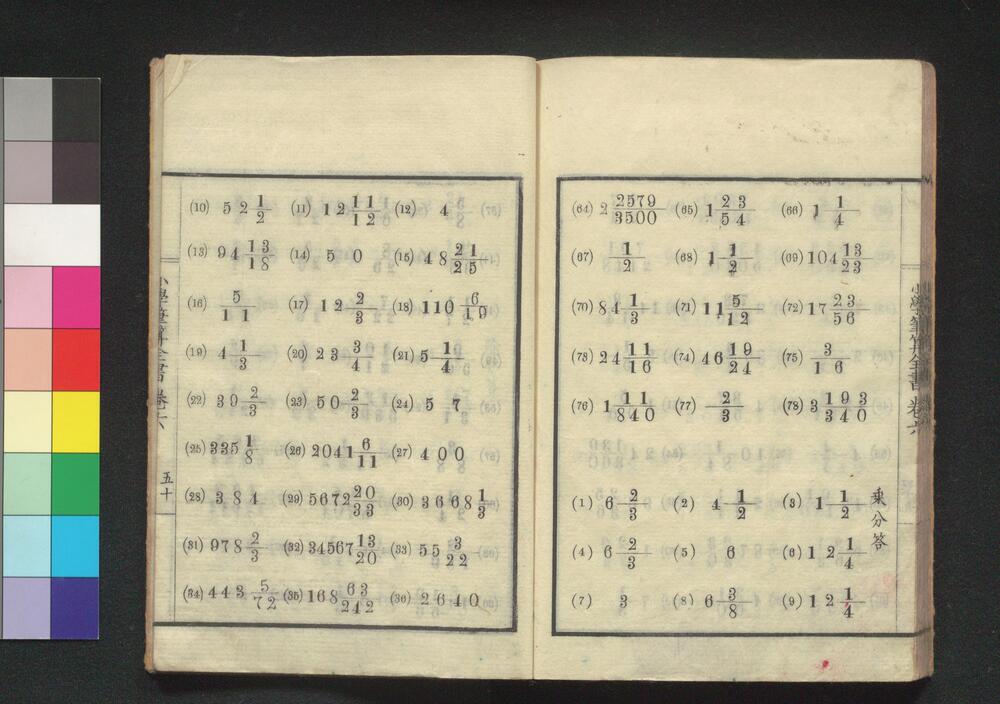 (64) 2 2579/3500 (65) 1 23/54 (66) 1 1/4
(67) 1/2 (68) 1 1/2 (69) 104 13/23
(70) 84 1/3 (71) 11 5/12 (72) 17 23/56
(73) 24 11/16 (74) 46 19/24 (75) 3/16
(76) 1 11/840 (77) 2/3 (78) 3 193/340
乘分答
(1) 6 2/3 (2) 4 1/2 (3) 1 1/2
(4) 6 2/3 (5) 6 (6) 12 1/4
(7) 3 (8) 6 3/8 (9) 12 1/4
小學筆算全書 卷六
(10) 52 1/2 (11) 12 11/12 (12) 4
(13) 94 13/18 (14) 50 (15) 48 21/25
(16) 5/11 (17) 12 2/3 (18) 110 6/19
(19) 4 1/3 (20) 23 3/4 (21) 5 1/4
(22) 30 2/3 (23) 50 2/3 (24) 57
(25) 335 1/8 (26) 2041 6/11 (27) 400
(28) 384 (29) 5672 20/33 (30) 3668 1/3
(31) 978 2/3 (32) 34567 13/20 (33) 55 3/22
(34) 443 5/72 (35) 168 63/242 (36) 2640
小學筆算全書 卷六
五十